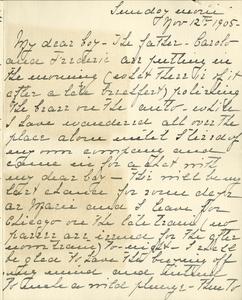 Sunday morn
Nov 12th 1905-
My dear boy - The father - Carolo-
and Frederic are putting in
the morning (what there is of it
after a late breakfast) polishing
the brass on the auto - while
I have wandered all over the
place alone until I tired of
my own company and
came in for a chat with
my dear boy - This will be my
last chance for some days
as Marie and I leave for
Chicago on the late train (no
parlor
on the after
noon train) to-night - I shall
be glad to have this
my mind and
to make a wild plunge - then to